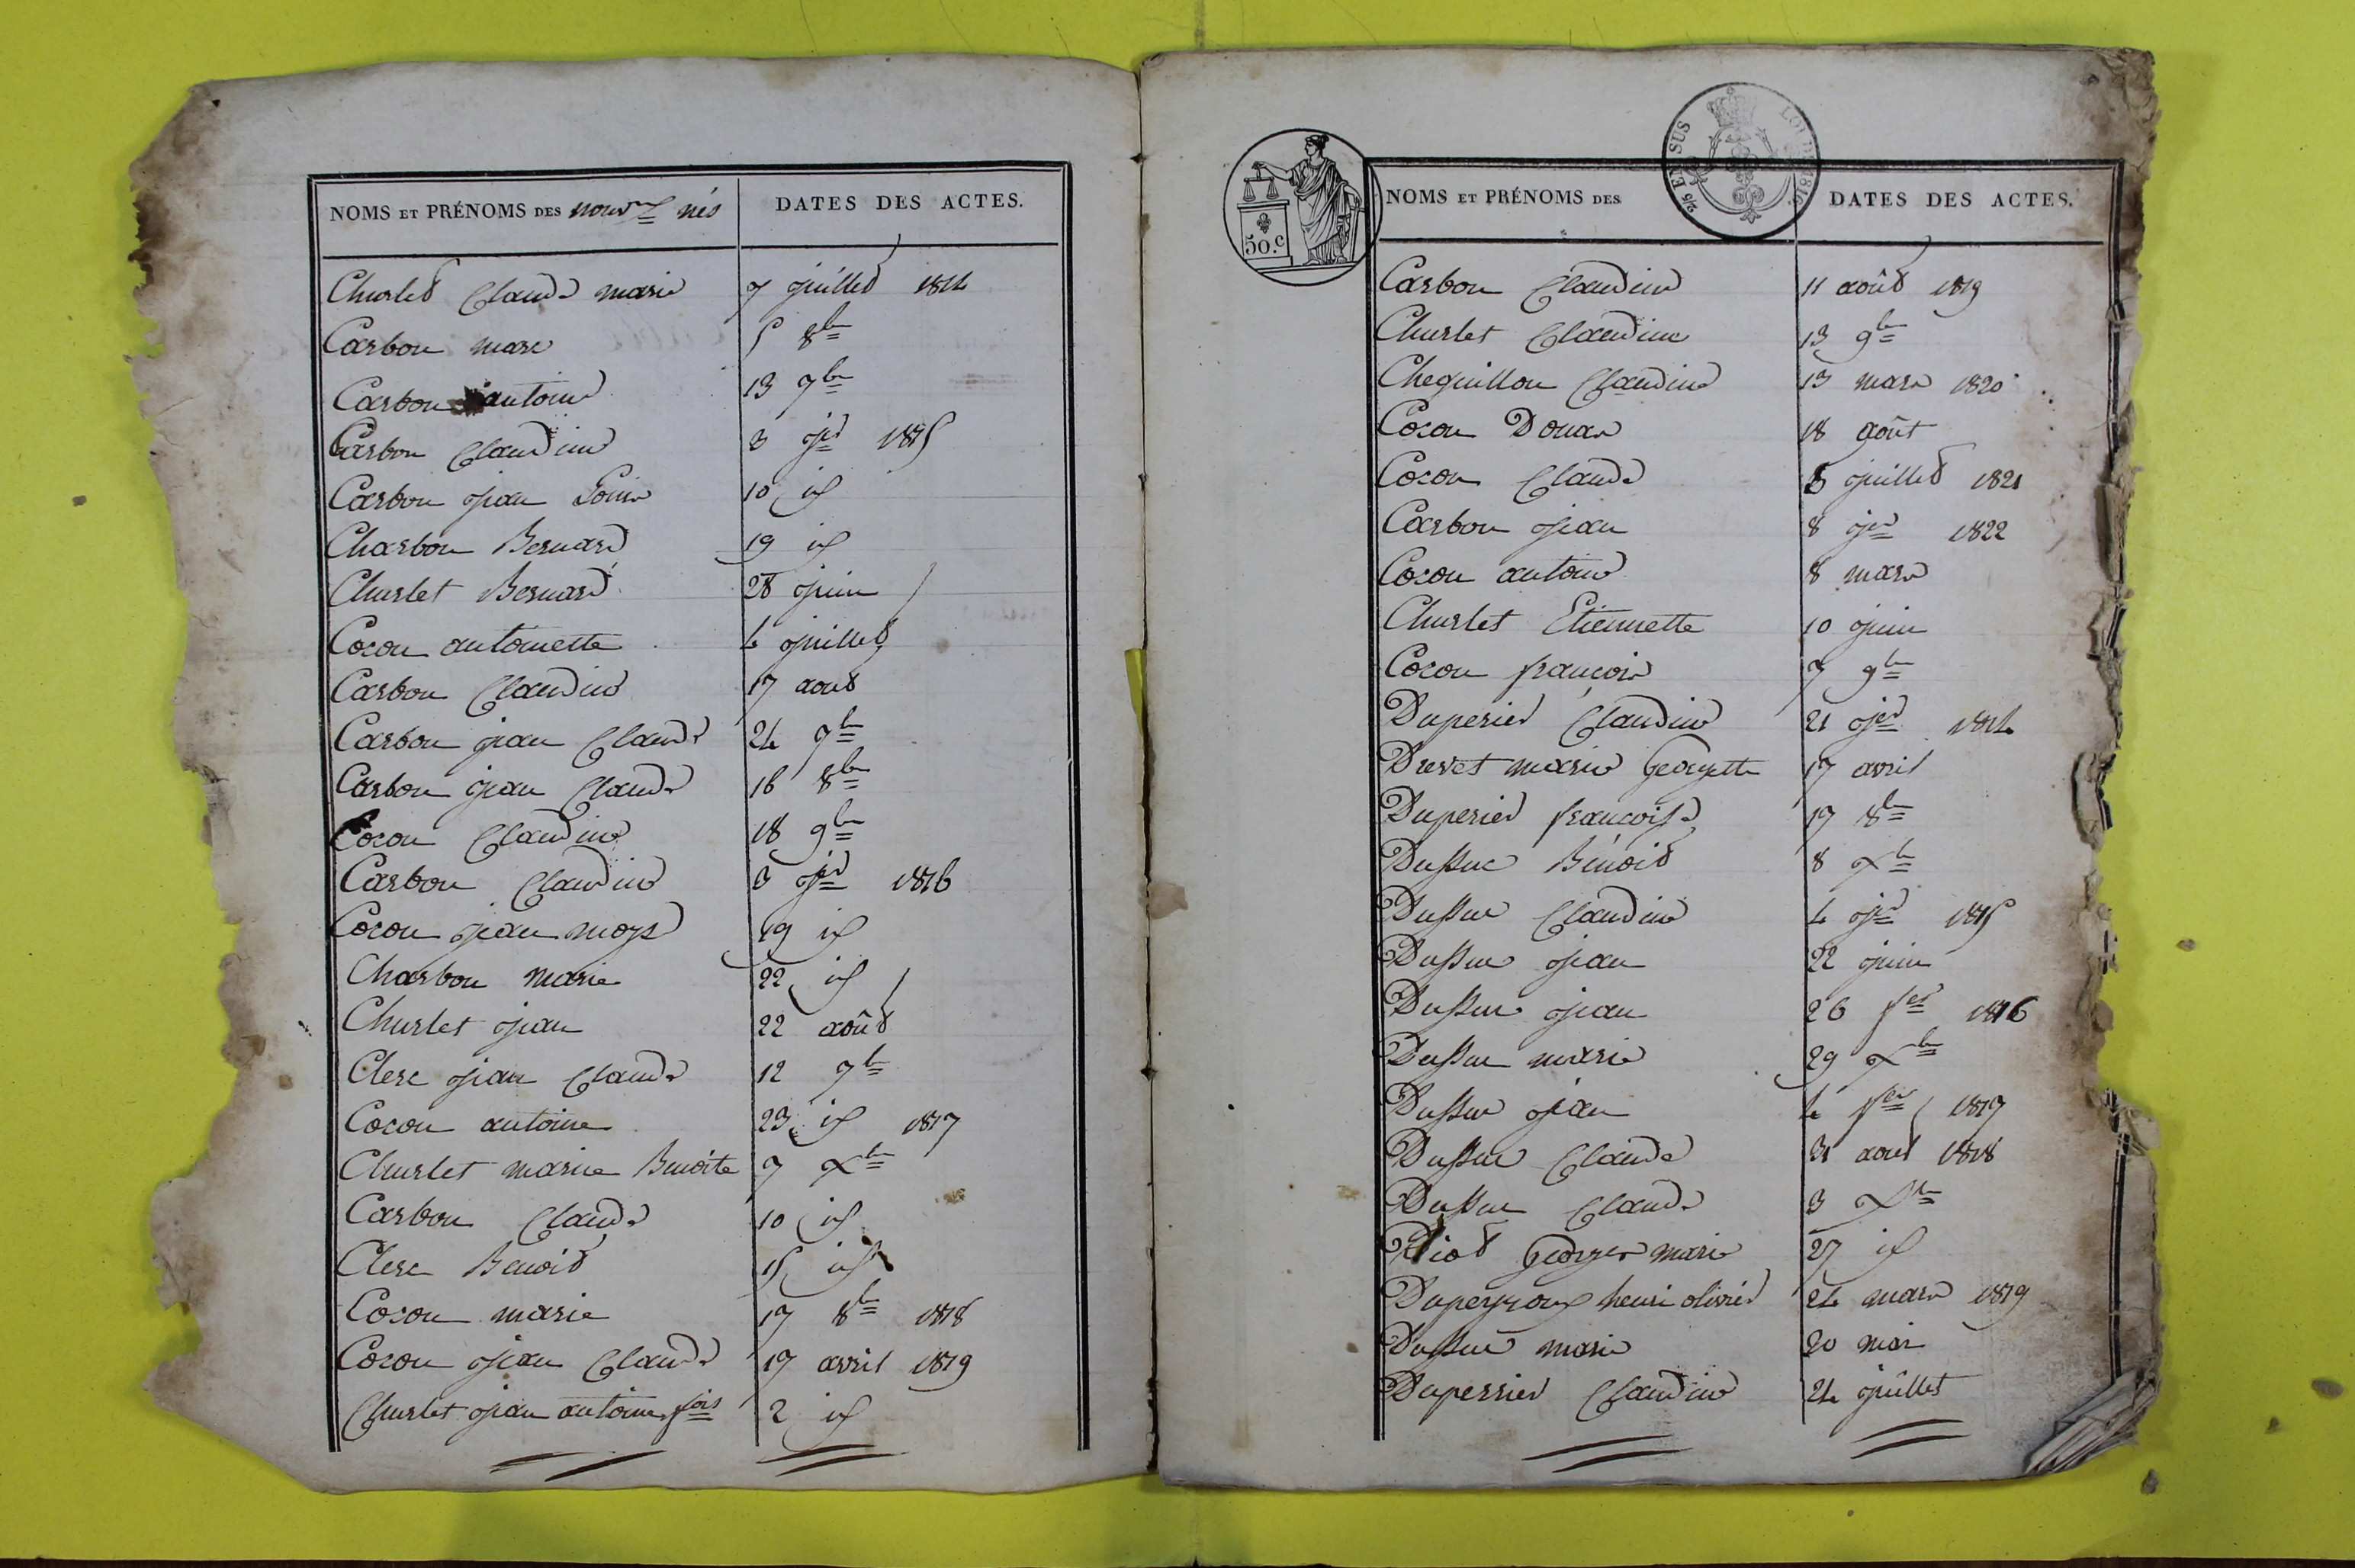 NOMS ET PRÉNOMS DES nouv nés DATES DES ACTES.
Churlet Claude marie 7 juillet 1814
Carbon marc 5 8bre
Carbon antoine 13 7bre
Carbon Claudine 3 jer 1815
Carbon jean Louis 10 id
Charbon Bernard 19 id
Churlet Bernard 28 juin
Coron antoinette 4 juillet
Carbon Claudine 17 aout
Carbon jean Claude 24 7bre
Carbon jean Claude 16 8bre
Coron Claudine 18 9bre
Carbon Claudine 3 jer 1816
Coron jean moys 19 id
Charbon marie 22 id
Churlet jean 22 août
Clerc jean Claude 12 7bre
Coron antoine 23 id 1817
Churlet marie Benoite 7 Xbre
Carbon Claude 10 id
Clerc Benoit 15 id
Coron marie 17 8bre 1818
Coron jean Claude 17 avril 1819
Churlet jean antoine fois 2 id
50.c
25 EN SUS LOI DE 1816.
NOMS ET PRÉNOMS DES DATES DES ACTES.
Carbon Claudine 11 août 1819
Churlet Claudine 13 9bre
Cheguillon Claudine 13 mars 1820
Coron Donas 18 août
Coron Claude 5 juillet 1821
Carbon jean 8 jer 1822
Coron antoine 8 mars
Churlet Etiennette 10 juin
Coron françois 7 9bre
Duperier Claudine 21 jer 1814
Drevet marie Georgette 17 avril
Duperier françoise 17 8bre
Dussuc Bénoit 8 Xbre
Dussuc Claudine 4 jer 1815
Dussuc jean 22 juin
Dussuc jean 26 fer 1816
Dussuc marie 29 Xbre
Dussuc jean 4 fer 1817
Dussuc Claude 31 aout 1818
Dussuc Claude 3 Xbre
Georges marie 27 id
Duperroux henri olivier 24 mars 1819
Dussuc marie 20 mai
Duperrier Claudine 24 juillet